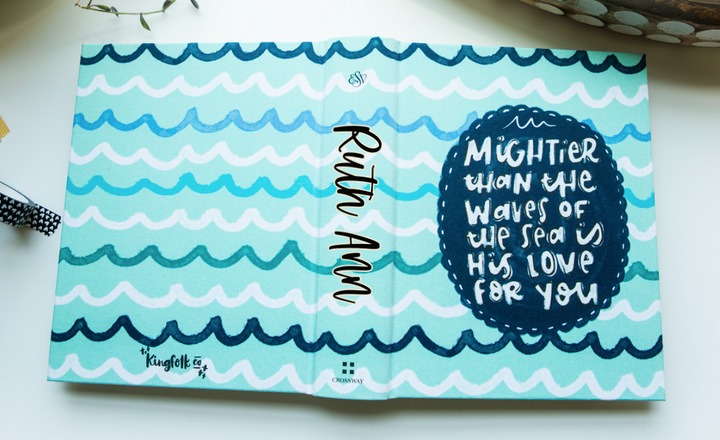 Kingfolk co
ESV
Ruth Ann
CROSSWAY
MiGHTiER
than the
WaVeS OF
the Sea is
HiS LOVe
FOR YOU